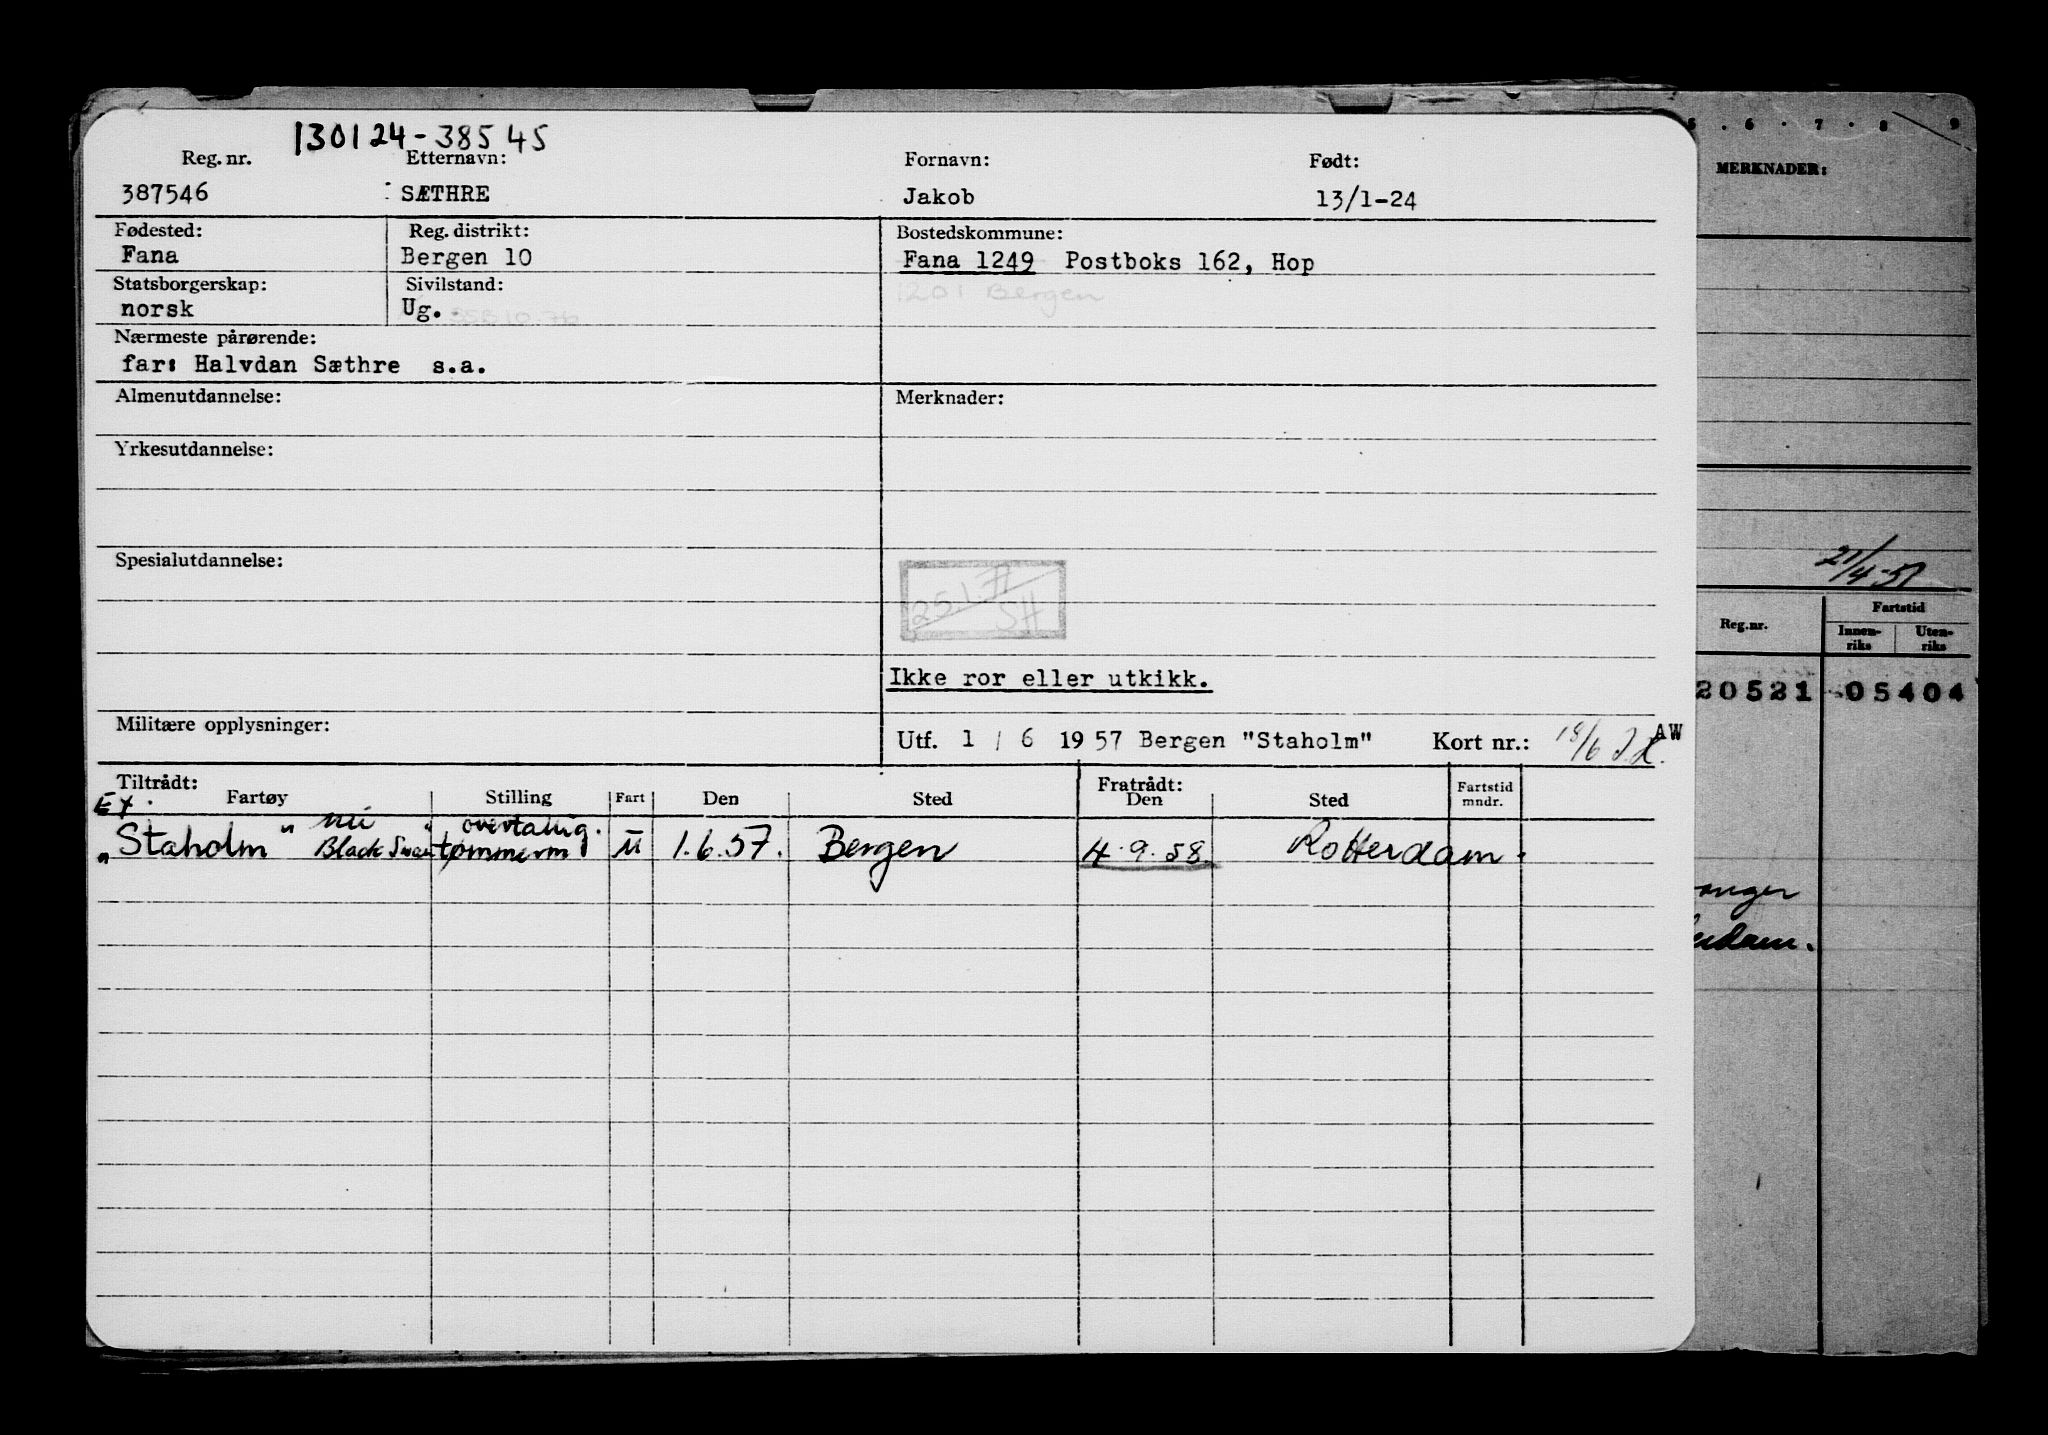 130124-38545
Reg. nr. Etternavn: Fornavn: Født:
387546 SÆTHRE Jakob 13/1-24
Fødested: Reg. distrikt: Bostedskommune:
Fana Bergen 10 Fana 1249 Postboks 162, Hop
1201 Bergen
Statsborgerskap: Sivilstand:
norsk Ug.
Nærmeste pårørende:
far: Halvdan Sæthre s.a.
Almenutdannelse: Merknader:
Yrkesutdannelse:
Spesialutdannelse:
25.1.71
SH
Ikke ror eller utkikk.
Militære opplysninger:
Utf. 1 / 6 1957 Bergen "Staholm" Kort nr.: 18/6 AW
Tiltrådt: Fratrådt:
Fartøy Stilling Fart Den Sted Den Sted Fartstid mndr.
Ex. nu overtallig.
"Staholm" Black Swan tømmerm U 1.6.57. Bergen 4.9.58. Rotterdam.
5 . 6 . 7 . 8 9
MERKNADER:
21/4-51
Reg.nr. Fartstid
Innen-riks Uten-riks
20521 05404
anger
dam.